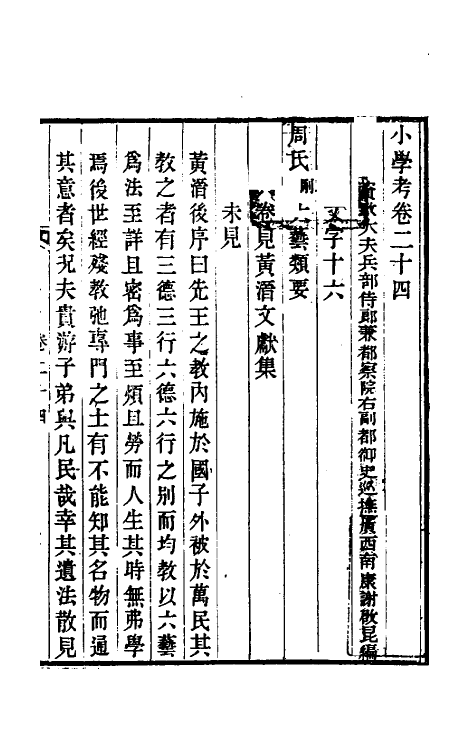 小學考卷二十四
大夫兵部侍郎兼都察院右副都御史巡撫廣西南康謝啟昆編
文字十六
周氏剛六藝類要
卷見黃溍文獻集
未見
黃溍後序曰先王之教內施於國子外被於萬民其
教之者有三德三行六德六行之別而均教以六藝
爲法至詳且密爲事至煩且勞而人生其時無弗學
焉後世經殘教弛專門之士有不能知其名物而通
其意者矣況夫貴游子弟與凡民哉幸其遺法散見
卷二十四